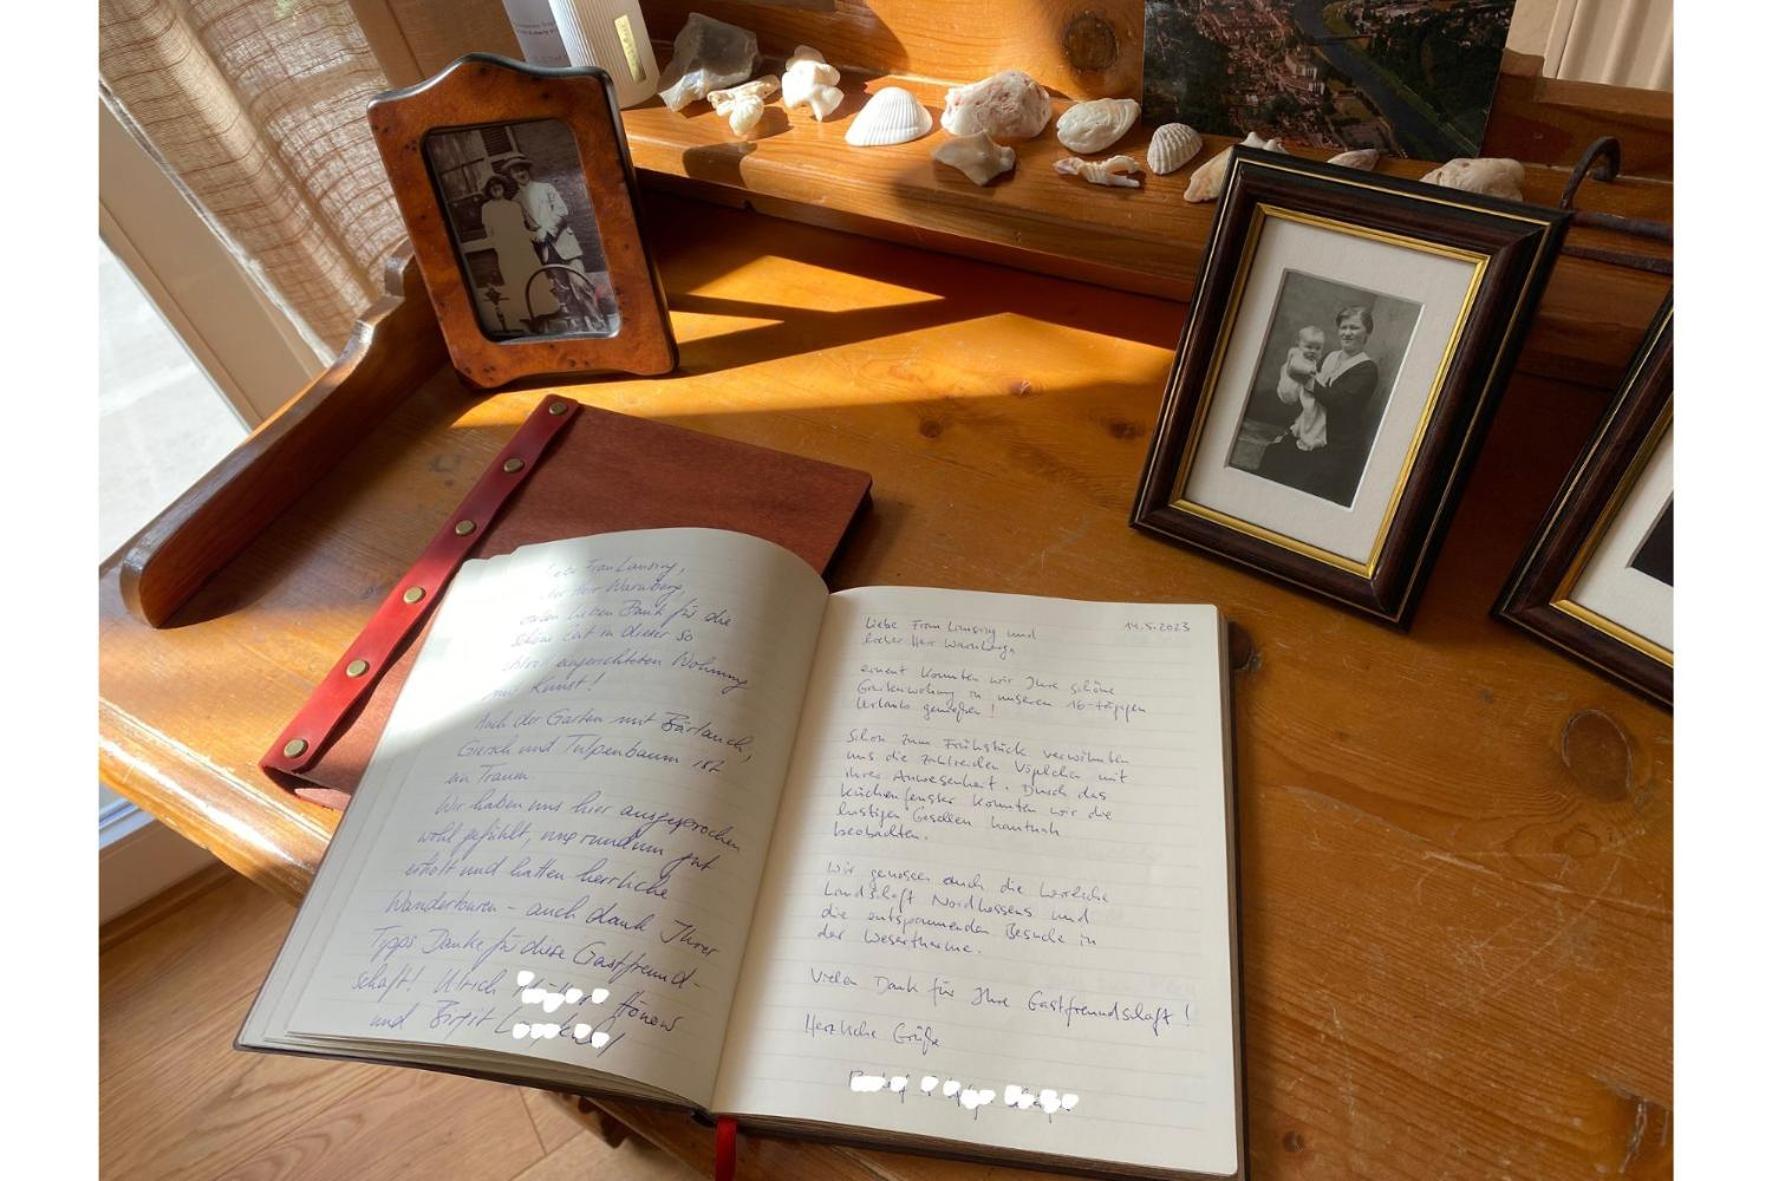 Liebe Frau Lansing,
Herr Warnberg,
vielen lieben Dank für die
schöne Zeit in dieser so
eingerichteten Wohnung
mit Kunst!
Auch der Garten mit Bärlauch,
Giersch und Tulpenbaum ist
ein Traum.
Wir haben uns hier ausgesprochen
wohl gefühlt, uns rundum gut
erholt und hatten herrliche
Wandertouren – auch dank Ihrer
Tipps Danke für diese Gastfreund-
schaft! Ulrich Hönow
und Birgit
14.5.2023
Liebe Frau Lansing und
lieber Herr Warnberg,
erneut konnten wir Ihre schöne
Gartenwohnung in unserem 16-tägigen
Urlaub genießen!
Schon zum Frühstück verwöhnten
uns die zahlreichen Vöglchen mit
ihrer Anwesenheit. Durch das
Küchenfenster konnten wir die
lustigen Gesellen hautnah
beobachten.
Wir genossen auch die herrliche
Landschaft Nordhessens und
die entspannenden Besuche in
der Wesertherme.
Vielen Dank für Ihre Gastfreundschaft!
Herzliche Grüße